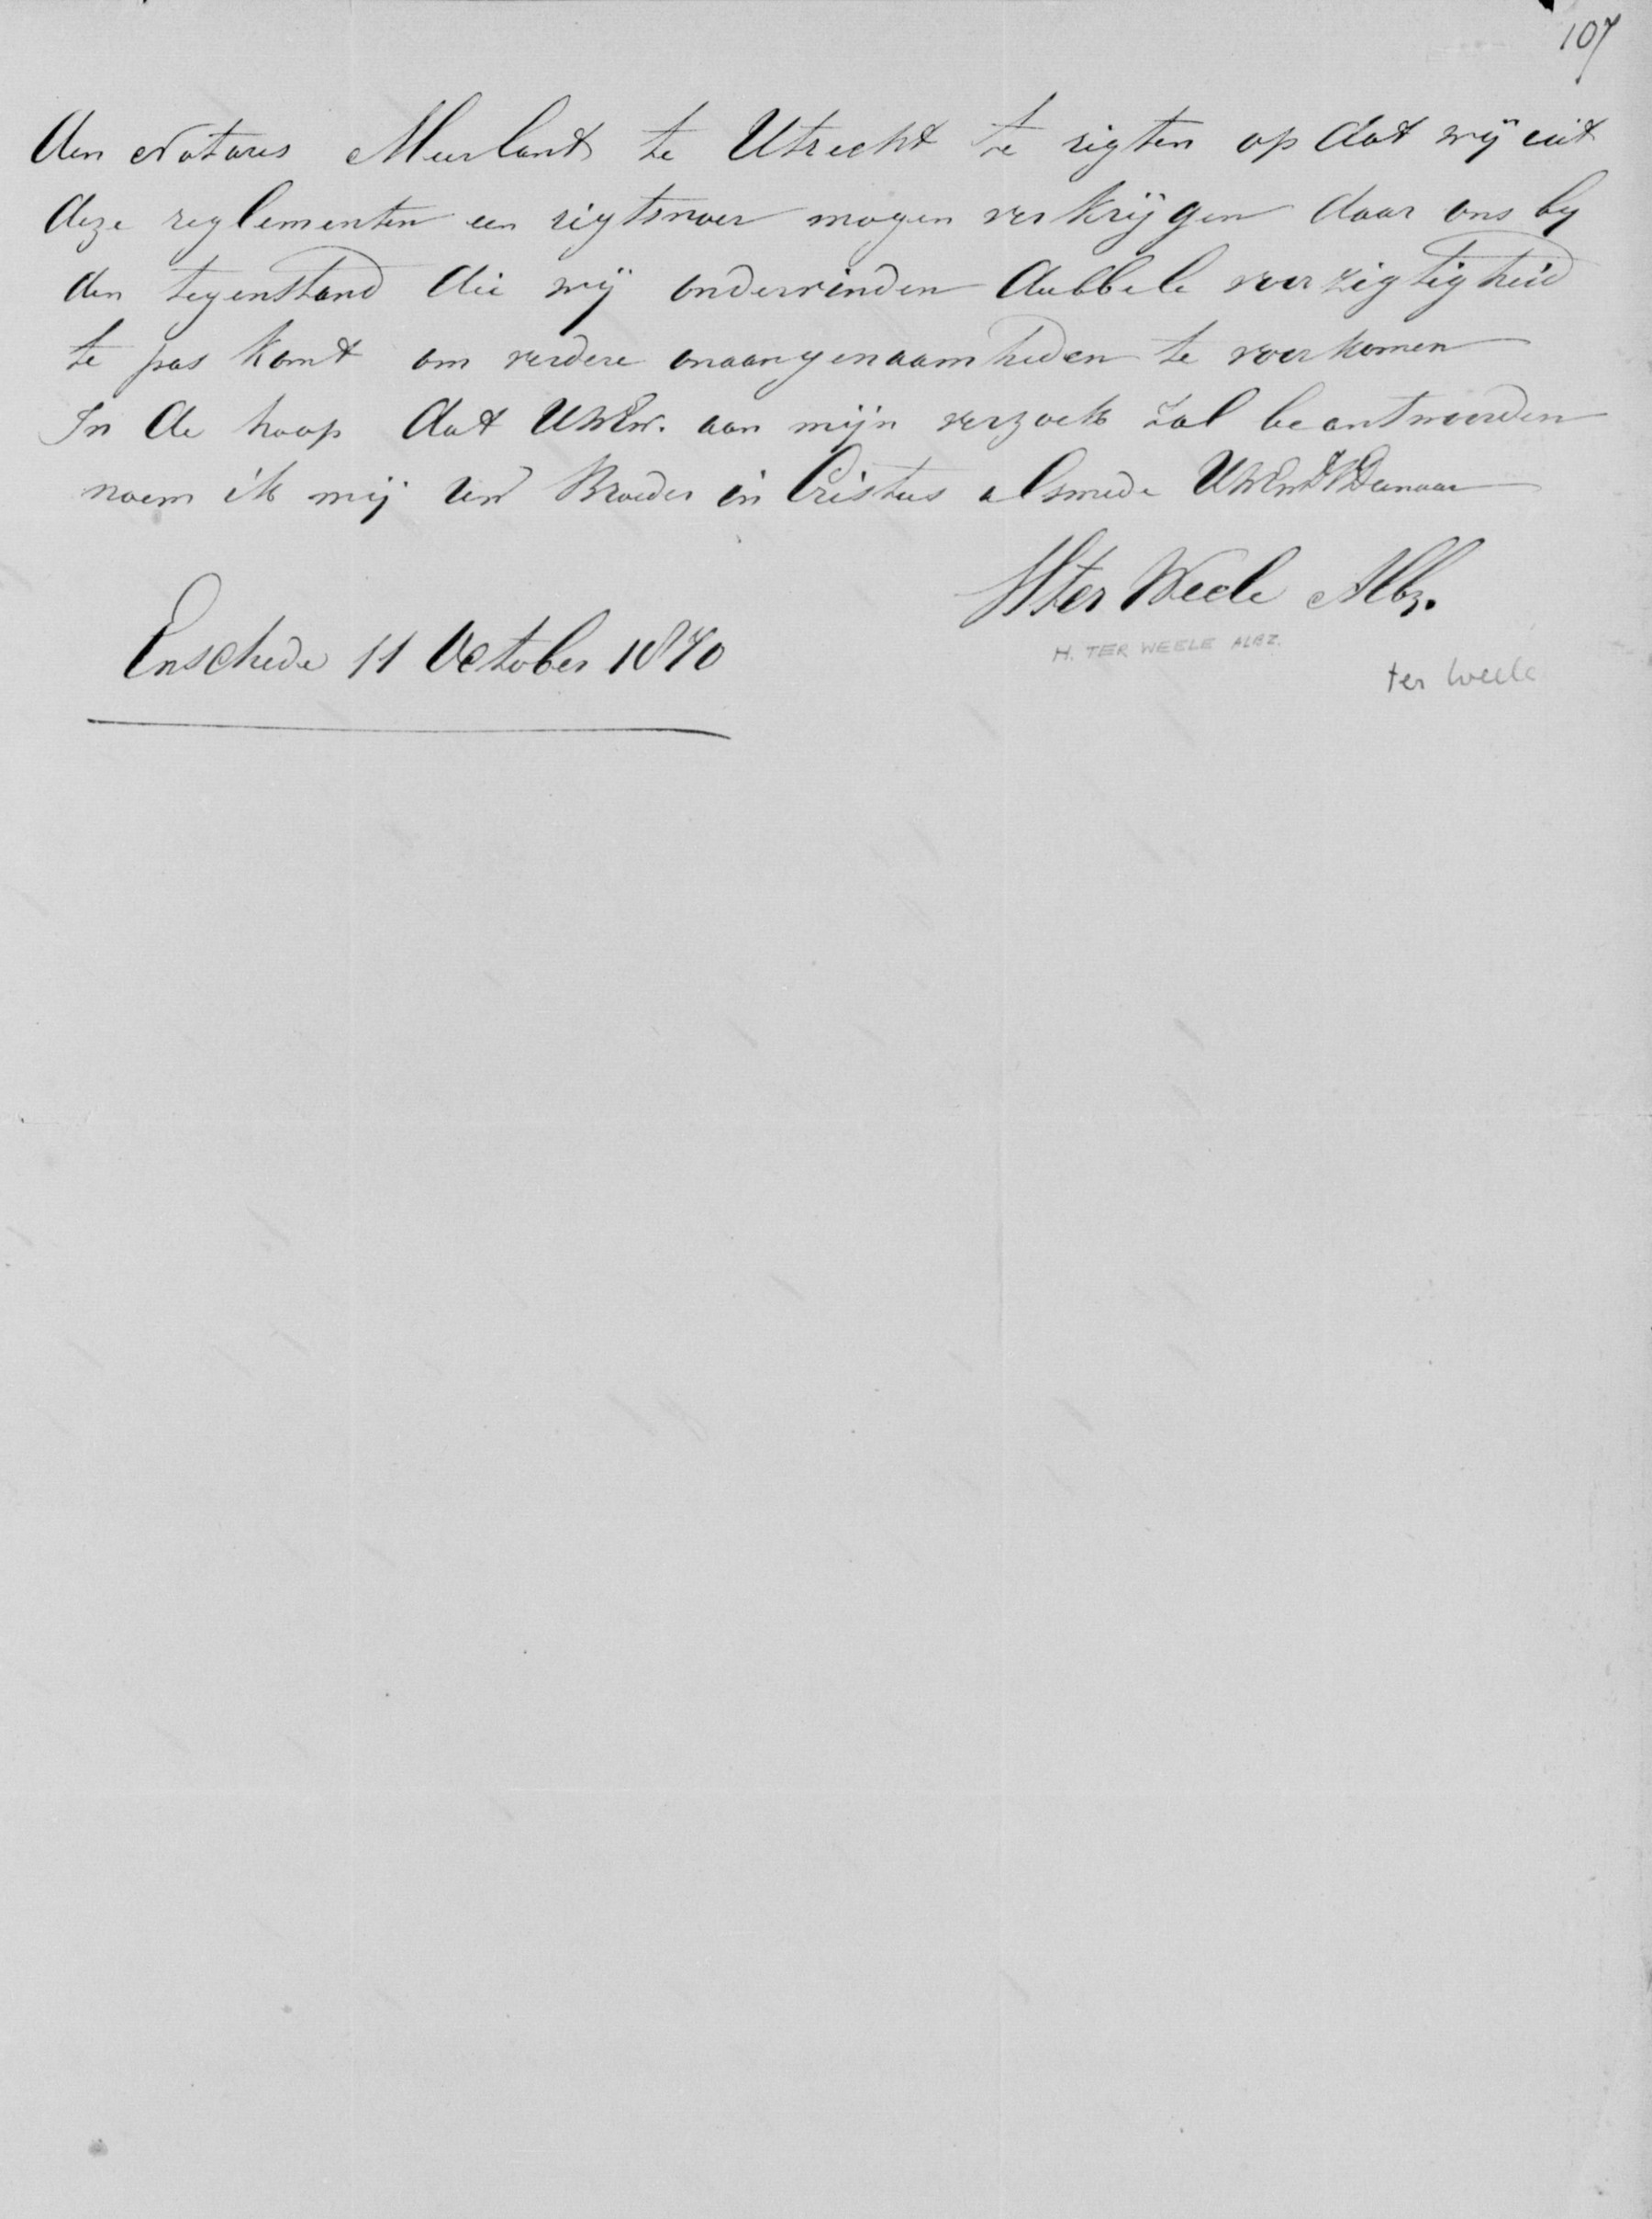 107
den Notaris Meerlant te Utrecht te rigten op dat wij uit
deze reglementen een rigtsnoer mogen verkrijgen daar ons by
den tegenstand die wij ondervinden dubbele voorzigtigheid
te pas komt om verdere onaangenaamheden te voorkomen
In de hoop dat UWEw. aan mijn verzoek zal beantwoorden
noem ik mij Uw Broeder in Cristus alsmede UWEw Dienaar
H ter Weele Albz.
H. TER WEELE ALBZ.
ter Weele
Enschede 11 October 1870